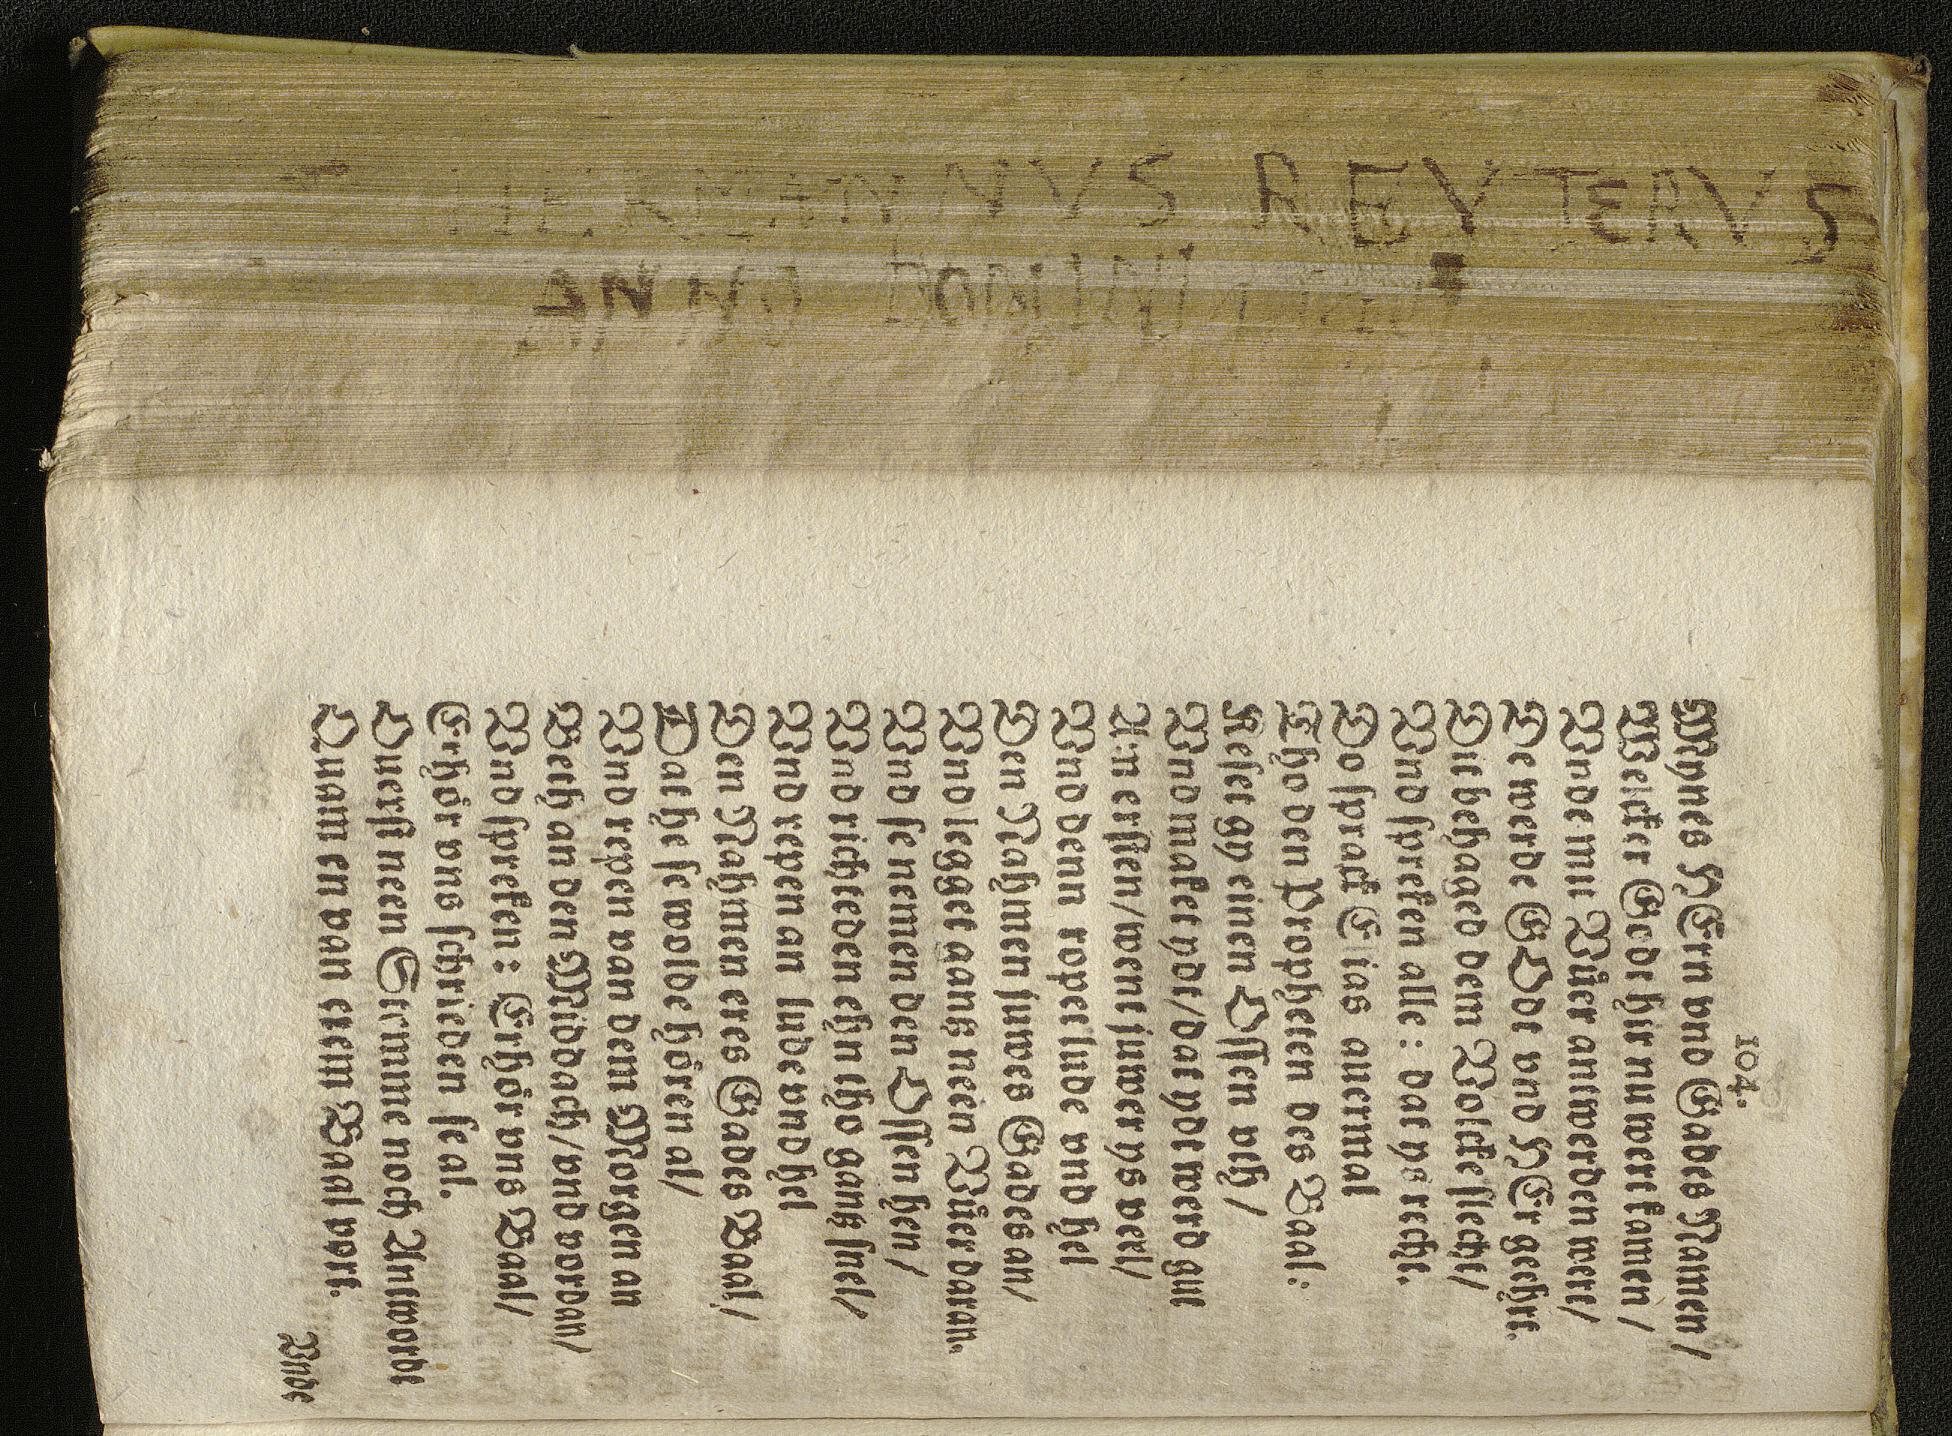 HERMANNVS REVTERVS
ANNO DOMINI
104.
Mynes HErn vnd Gades Namen/
Welcker Godt hir nu wert kamen/
Vnde mit Vüer antwerden wert/
De werde GOdt vnd HEr geehrt.
Dit behaged dem Volcke slecht/
Vnd spreken alle: dat ys recht.
Do sprack Elias auermal
Tho den Propheten des Baal:
Keset gy einen Ossen vth/
Vnd maket ydt/dat ydt werd gut
Am ersten/went juwer ys veel/
Vnd denn ropet lude vnd hel
Den Nahmen juwes Gades an/
Vnd legget gans nein Vüer daran.
Vnd se nemen den Ossen hen/
Vnd richteden ehn tho gantz snel/
Vnd repen an lude vnd hel
Den Nahmen eres Gades Baal/
Dat he se wolde hören al/
Vnd repen van dem Morgen an
Beth an den Middach/vnd vordan/
Vnd spreken: Erhör vns Baal/
Erhör vns schrieden se al.
Ouerst neen Stemme noch Antwordt
Quam en van erem Baal vort.
Vnde